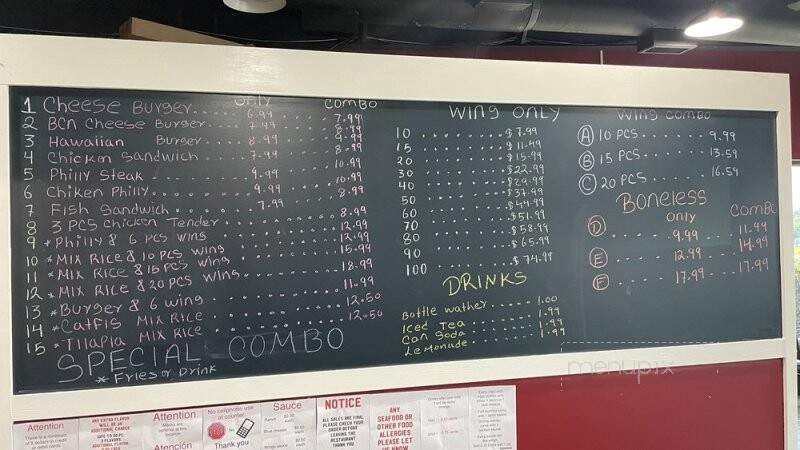 only combo
1 Cheese Burger.... 6.99 7.99
2 BCN Cheese Burger... 7.99 8.99
3 Hawaiian Burger... 8.99
4 Chicken Sandwich.... 7.99 8.99
5 Philly Steak ........ 9.99 10.99
6 Chiken Philly......... 9.99 10.99
7 Fish Sandwich..... 7.99 8.99
8 3 PCS Chicken Tender ..... 8.99
9 *Philly & 6 PCS wing ..... 12.99
10 *Mix Rice & 10 PCS wing ..... 12.99
11 *Mix Rice & 15 PCS wing ..... 15.99
12 *Mix Rice & 20 PCS wing..... 18.99
13 *Burger & 6 wing ..... 11.99
14 *Catfis Mix Rice ..... 12.50
15 *Tilapia Mix Rice ..... 12.50
SPECIAL COMBO
*Fries or Drink
WING ONLY
10 ........ $7.99
15 ........ $11.49
20 ........ $15.99
30 ........ $22.99
40 ........ $29.99
50 ........ $37.99
60 ........ $44.99
70 ........ $51.99
80 ........ $58.99
90 ........ $65.99
100 ........ $74.99
DRINKS
Bottle wather..... 1.00
Iced Tea ....... 1.99
Can Soda ....... 1.99
Lemonade ....... 1.99
WING COMBO
A 10 PCS ...... 9.99
B 15 PCS ...... 13.59
C 20 PCS ...... 16.59
Boneless
only Combo
D .... 9.99 ... 11.99
E .... 12.99 ... 14.99
F .... 17.99 ... 17.99
menupix
Attention
Attention
Atención
No cellphone use at counter
Thank you
Sauce
NOTICE
ALL SALES ARE FINAL
PLEASE CHECK YOUR
ORDER BEFORE
LEAVING THE
RESTAURANT
THANK YOU
ANY
SEAFOOD OR
OTHER FOOD
ALLERGIES
PLEASE LET
US KNOW